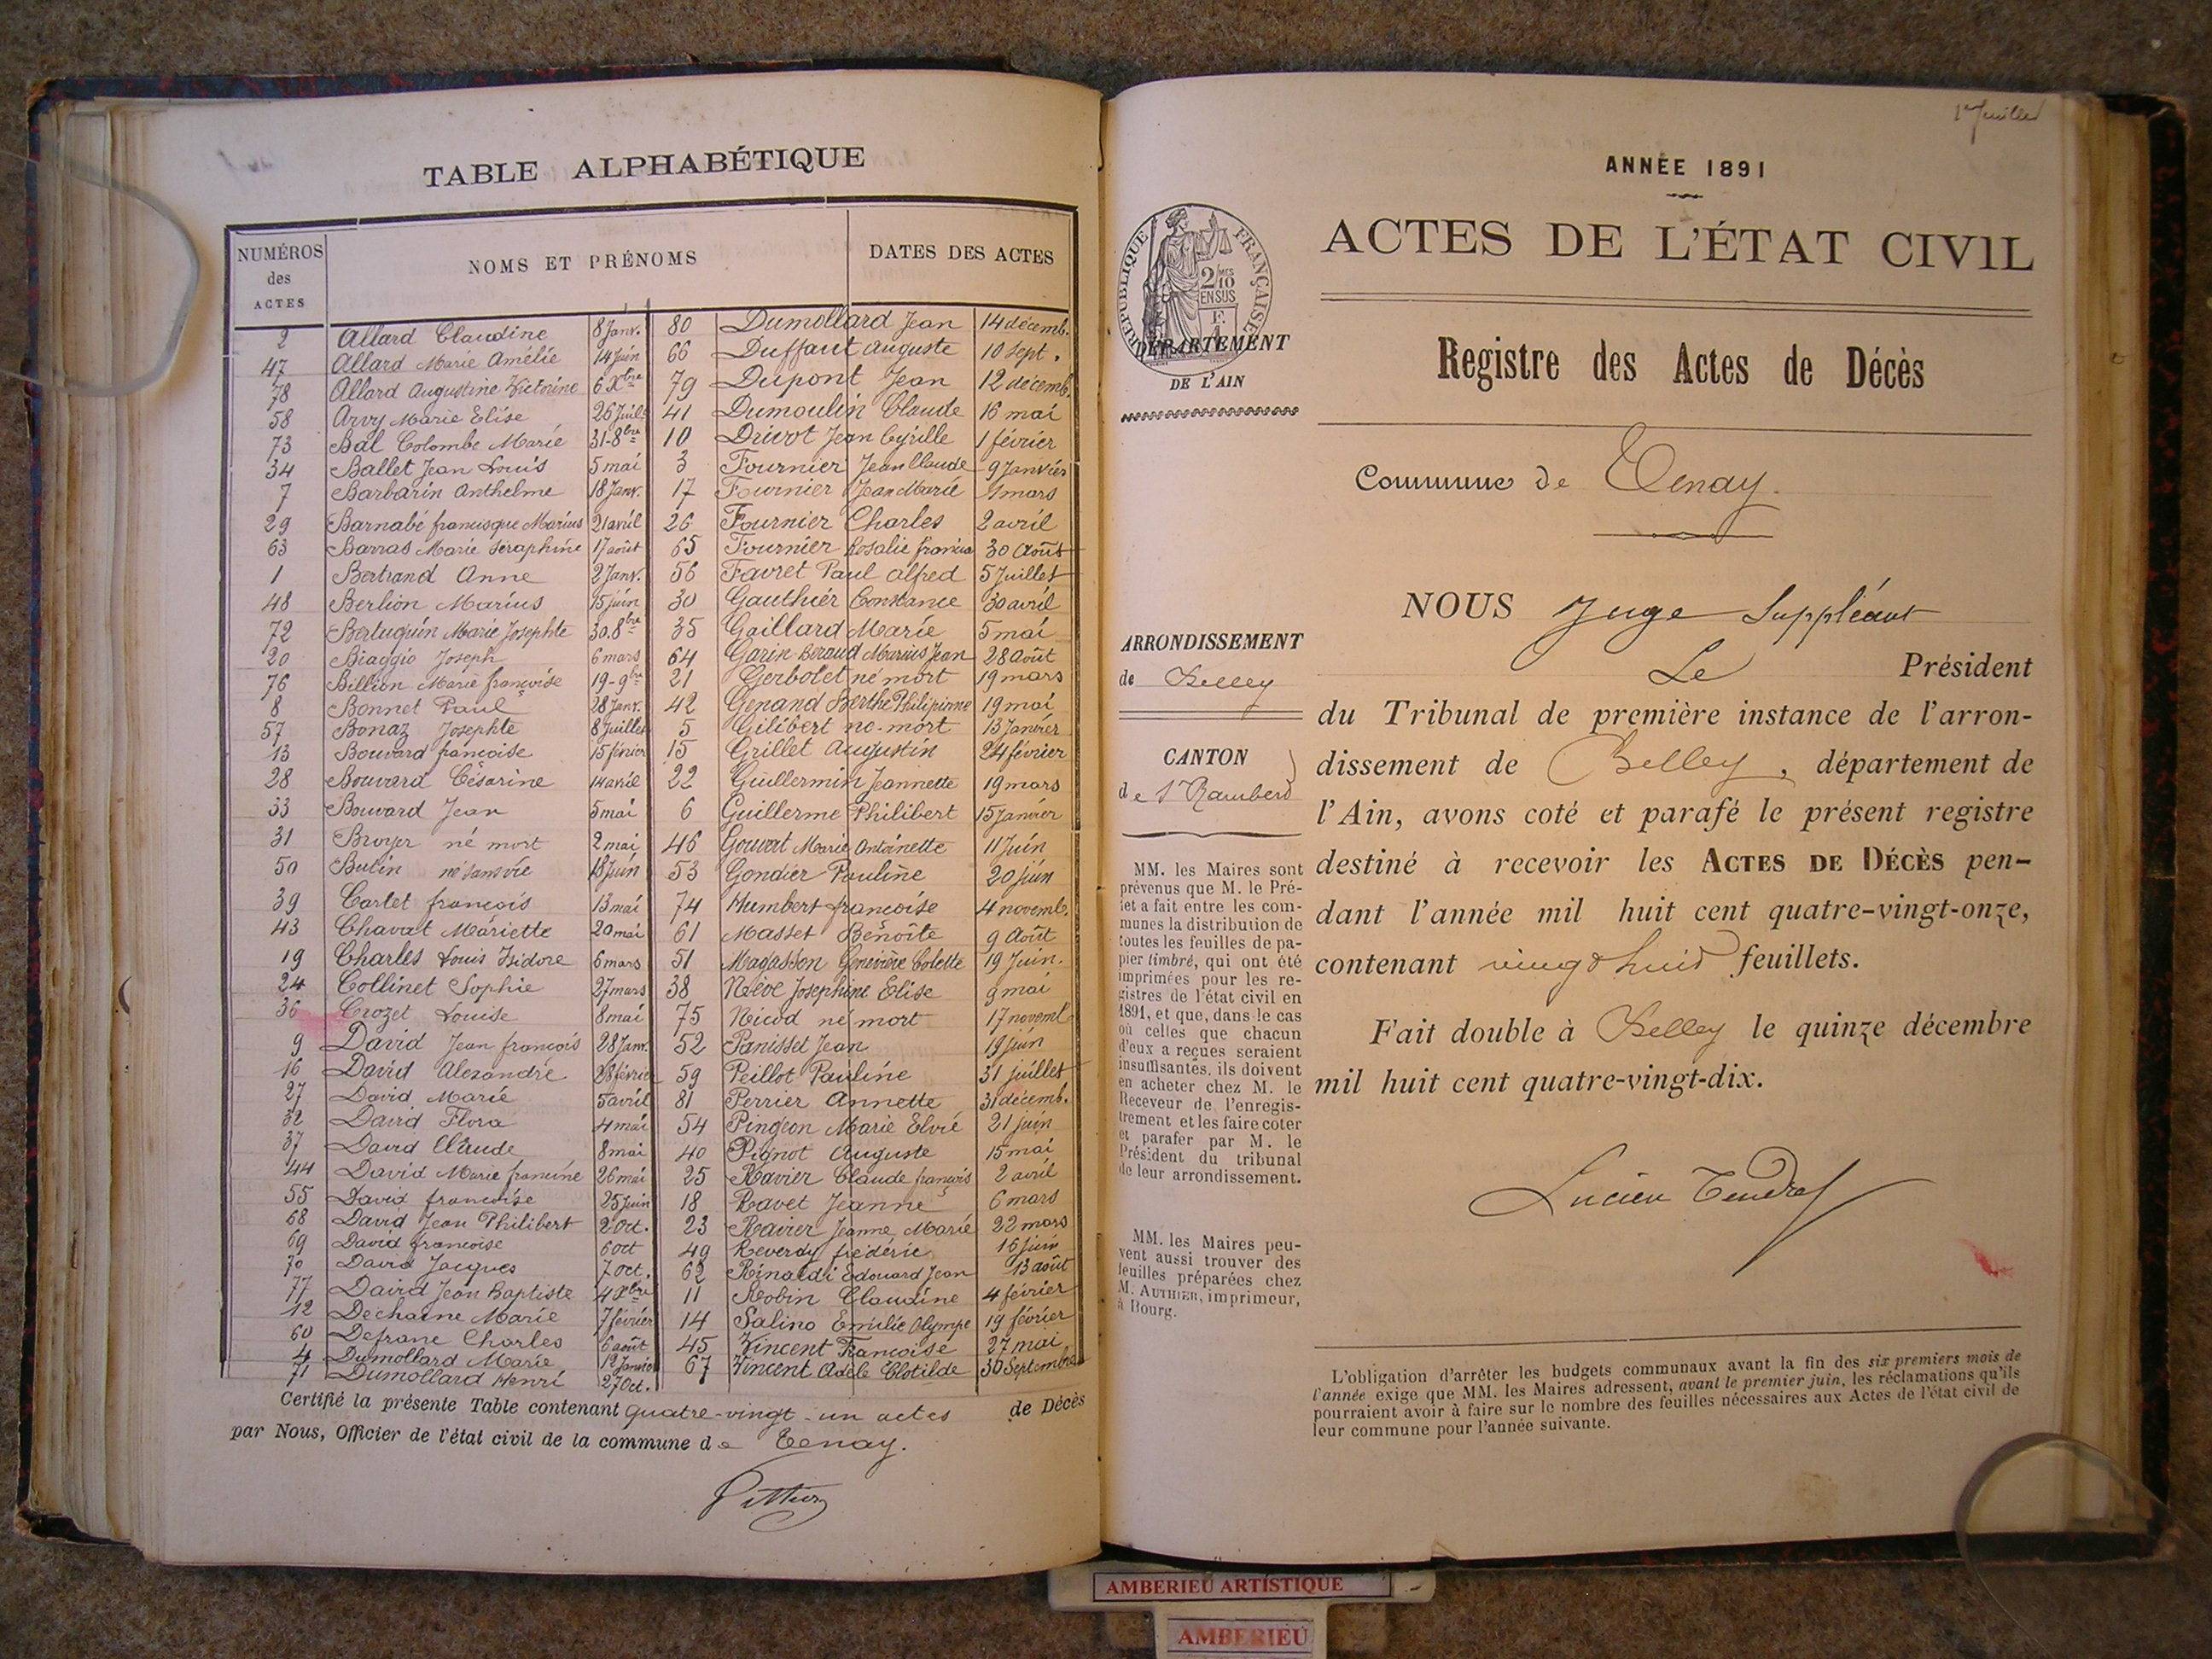 TABLE ALPHABÉTIQUE
NUMÉROS
des
ACTES
NOMS ET PRÉNOMS
DATES DES ACTES
2 Allard Claudine 8 Janv.
47 Allard Marie Amélie 14 Juin
78 Allard Augustine Victorine 6 Xbre
58 Arvy Marie Elise 26 Juil.
73 Bal Colombe Marie 31-8bre
34 Ballet Jean Louis 5 mai
7 Barbarin Anthelme 18 Janv.
29 Barnabé francisque Marius 21 avril
63 Barras Marie Séraphine 17 août
1 Bertrand Anne 2 Janv.
48 Berlion Marius 15 juin
72 Bertuquin Marie Josephte 30.8bre
20 Biaggio Joseph 6 mars
76 Billion Marie françoise 19-9bre
8 Bonnet Paul 28 Janv.
57 Bonaz Josephte 8 Juillet
13 Bouvard françoise 15 février
28 Bouvard Césarine 14 avril
33 Bouvard Jean 5 mai
31 Broyer né mort 2 mai
50 Butin né sans vie 18 Juin
39 Cartet françois 13 mai
43 Chavat Mariette 20 mai
19 Charles Louis Isidore 6 mars
24 Collinet Sophie 27 mars
36 Crozet Louise 8 mai
9 David Jean françois 28 Janv.
16 David Alexandre 28 février
27 David Marie 5 avril
32 David Flora 4 mai
37 David Claude 8 mai
44 David Marie francine 26 mai
55 David françoise 25 Juin
68 David Jean Philibert 2 Oct.
69 David françoise 6 oct
70 David Jacques 7 oct.
77 David Jean Baptiste 4 Xbre
12 Dechaine Marie 7 février
60 Defrane Charles 6 août
4 Dumollard Marie 12 Janvier
71 Dumollard Henri 27 Oct.
80 Dumollard Jean 14 décemb.
66 Duffaut Auguste 10 Sept.
79 Dupont Jean 12 décemb.
41 Dumoulin Claude 16 mai
10 Drivot Jean Cyrille 1 février
3 Fournier Jean Claude 9 Janvier
17 Fournier Jean Marie 1 mars
26 Fournier Charles 2 avril
65 Fournier Rosalie 30 Août
56 Favret Paul Alfred 5 Juillet
30 Gauthier Constance 30 avril
35 Gaillard Marie 5 mai
64 Garin-Beraud Marius Jean 28 Août
21 Gerbolet né mort 19 mars
42 Genand Berthe Philipinne 19 mai
5 Gilibert né-mort 13 Janvier
15 Grillet Augustin 24 février
22 Guillermin Jeannette 19 mars
6 Guillerme Philibert 15 Janvier
46 Gouvert Marie Antoinette 11 Juin
53 Gondier Pauline 20 juin
74 Humbert françoise 4 novemb.
61 Masset Benoîte 9 Août
51 Magasson Geneviève Colette 19 Juin.
38 Néève Josephine Elise 9 mai
75 Nicod né mort 17 novemb
52 Panisset Jean 19 juin
59 Peillot Pauline 31 juillet
81 Perrier Annette 31 décemb.
54 Pingeon Marie Elvie 21 juin
40 Pignot Auguste 15 mai
25 Ravier Claude françois 2 avril
18 Ravet Jeanne 6 mars
23 Ravier Jeanne Marie 22 mars
49 Reverdy frédéric 16 juin
62 Rinaldi Edouard Jean 13 août
11 Robin Claudine 4 février
14 Salino Emilie Olympe 19 février
45 Vincent Françoise 27 mai
67 Vincent Adèle Clotilde 30 Septembre
Certifié la présente Table contenant quatre-vingt-un actes de Décès
par Nous, Officier de l'état civil de la commune de Tenay.
1er Juillet
ANNÉE 1891
ACTES DE L'ÉTAT CIVIL
Registre des Actes de Décès
Commune de Tenay.
RÉPUBLIQUE FRANÇAISE
2/10 MES
EN SUS
F.
1
DÉPARTEMENT
DE L'AIN
ARRONDISSEMENT
de Belley
CANTON
de St Rambert
MM. les Maires sont
prévenus que M. le Pré-
fet a fait entre les com-
munes la distribution de
toutes les feuilles de pa-
pier timbré, qui ont été
imprimées pour les re-
gistres de l'état civil en
1891, et que, dans le cas
où celles que chacun
d'eux a reçues seraient
insuffisantes, ils doivent
en acheter chez M. le
Receveur de l'enregis-
trement et les faire coter
et parafer par M. le
Président du tribunal
de leur arrondissement.
MM. les Maires peu-
vent aussi trouver des
feuilles préparées chez
M. AUTHIER, imprimeur,
à Bourg.
NOUS Juge Suppléant
Le Président
du Tribunal de première instance de l'arron-
dissement de Belley, département de
l'Ain, avons coté et parafé le présent registre
destiné à recevoir les ACTES DE DÉCÈS pen-
dant l'année mil huit cent quatre-vingt-onze,
contenant vingt huit feuillets.
Fait double à Belley le quinze décembre
mil huit cent quatre-vingt-dix.
Lucien Tendret
L'obligation d'arrêter les budgets communaux avant la fin des six premiers mois de
l'année exige que MM. les Maires adressent, avant le premier juin, les réclamations qu'ils
pourraient avoir à faire sur le nombre des feuilles nécessaires aux Actes de l'état civil de
leur commune pour l'année suivante.
AMBERIEU ARTISTIQUE
AMBERIEU